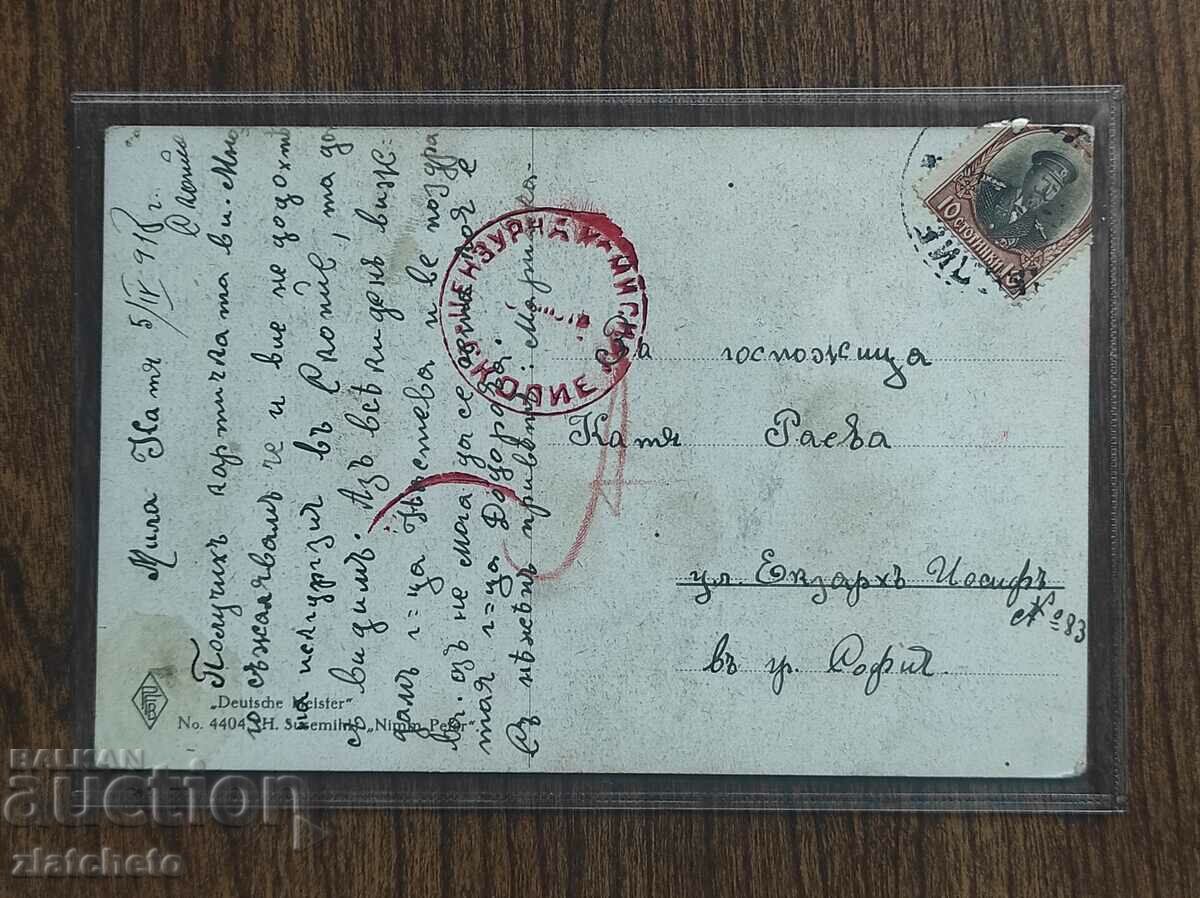 Мила Катя 5/IV 918 г.
Скопие
Получихъ картичката ви. Мно
го съжалявамъ че и вие не дохо
на екскурзия въ Скопие, та да
се видимъ. Азъ всѣки день виж-
дамъ г-ца Нѣшева и ве поздра
ва. азъ не мога да се
тая г-ца Додорова.
Съ нѣженъ привѣтъ: Марийка.
ЦЕНЗУРНА КОМИСИЯ
СКОПИЕ
10 СТОТИНКИ 10
За госпожица
Катя Раева
ул. Екзархъ Иосифъ
№ 83
въ гр. София
„Deutsche Meister"
No. 4404. H. Susemihl, „Nimm Peter"
BALKAN
auction
zlatcheto